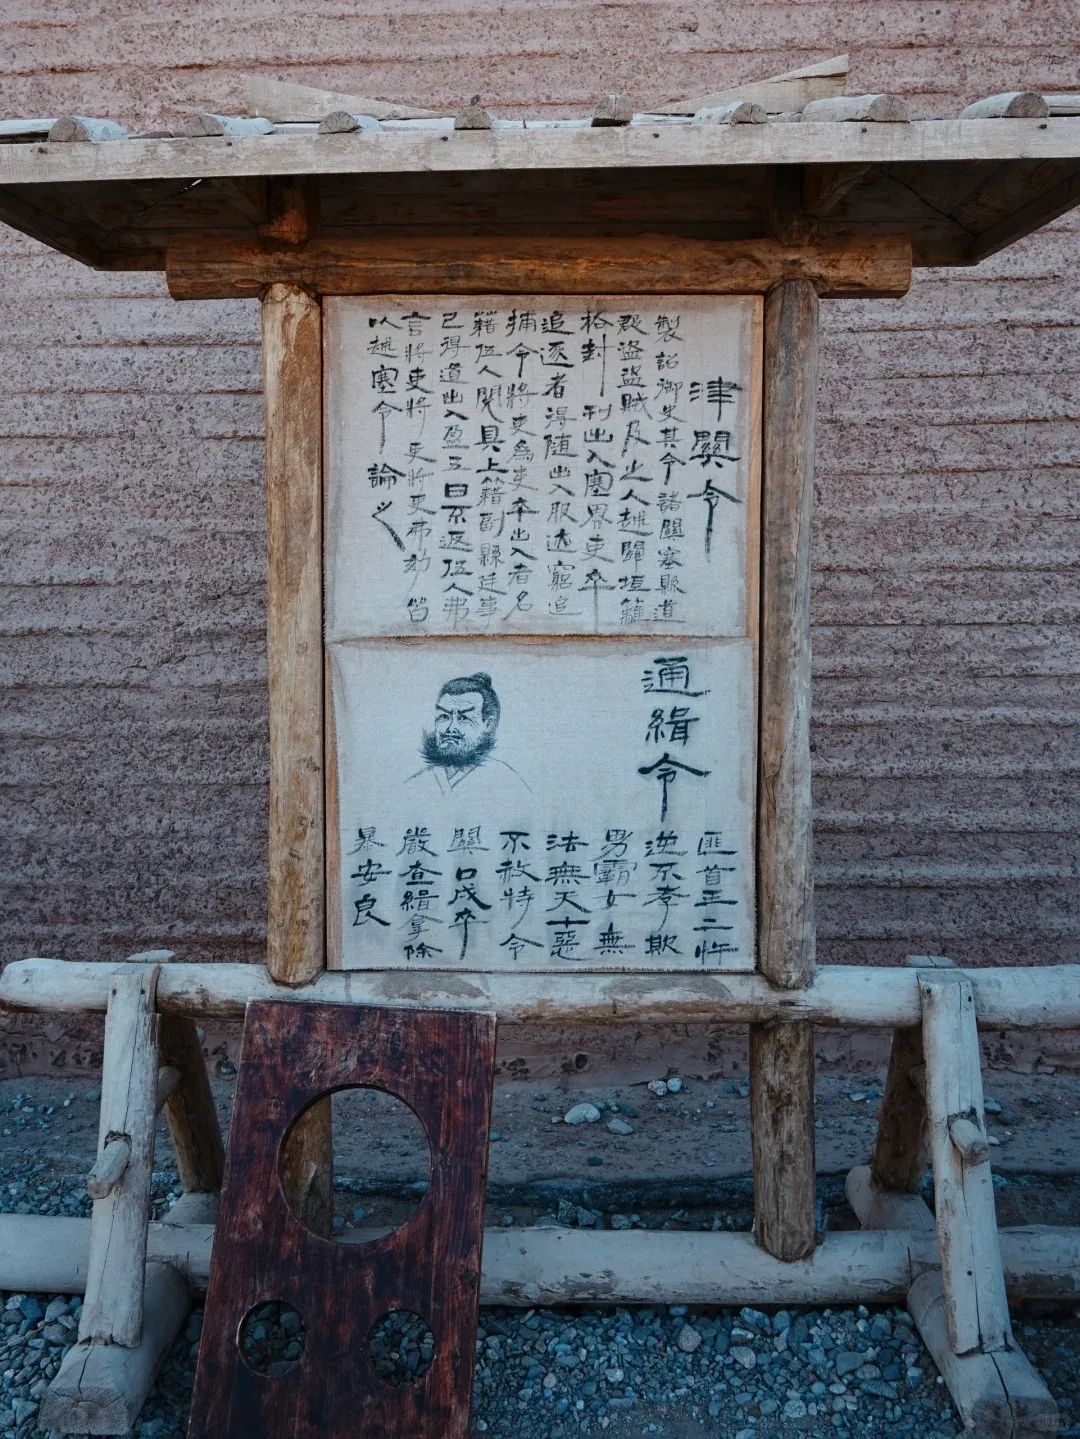 津關令
製詔御史其令諸關塞縣道
群盜盜賊及亡人越關垣籬
格封刊出入塞界吏卒
追逐者得隨出入服迹窮追
捕令將吏為吏卒出入者名
籍伍人閱具上籍副縣廷事
已得道出入盈五日不返伍人弗
言將吏將吏將吏弗劾皆
以越塞令論之
通緝令
匪首王二忤
逆不孝欺
男霸女無
法無天十惡
不赦特令
關口戍卒
嚴查緝拿除
暴安良